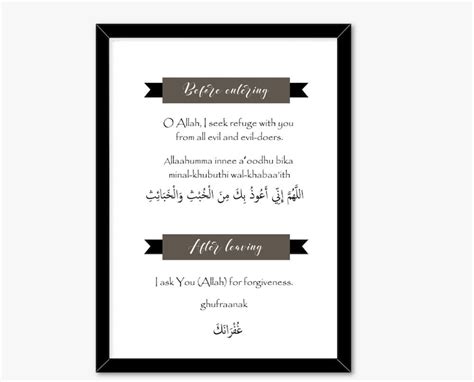 Before entering
O Allah, I seek refuge with you
from all evil and evil-doers.
Allaahumma innee a'oodhu bika
minal-khubuthi wal-khabaa'ith
اللَّهُمَّ إِنِّي أَعُوذُ بِكَ مِنَ الْخُبْثِ وَالْخَبَائِثِ
After leaving
I ask You (Allah) for forgiveness.
ghufraanak
غُفْرَانَكَ